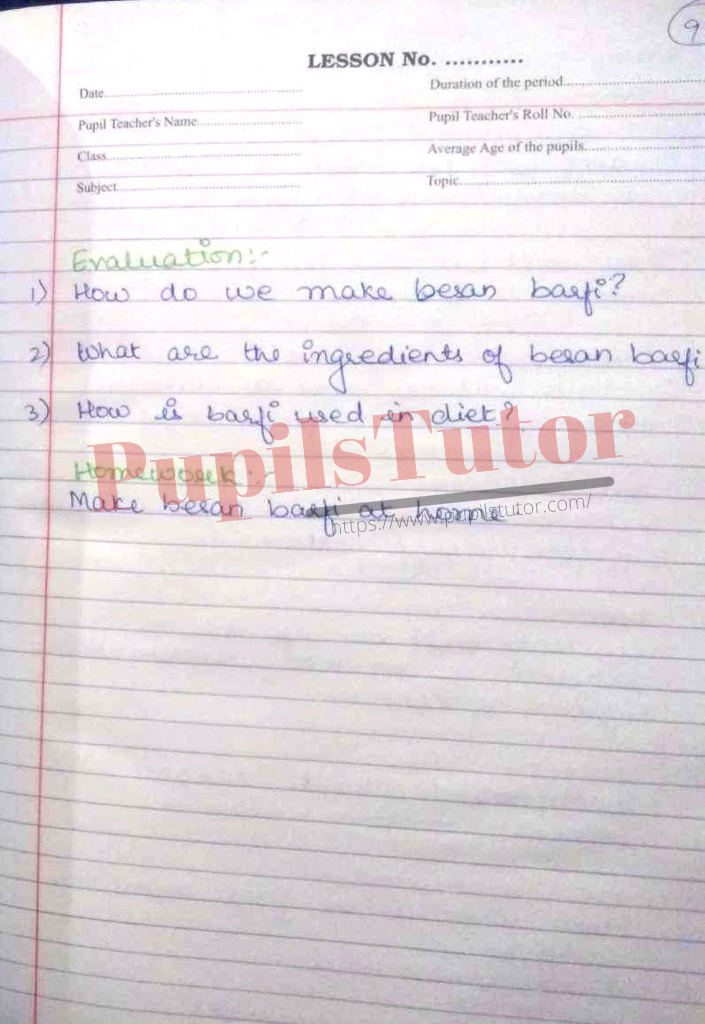 9
LESSON No. ...........
Date
Duration of the period
Pupil Teacher's Name
Pupil Teacher's Roll No.
Class
Average Age of the pupils
Subject
Topic
Evaluation:-
1) How do we make besan barfi?
2) What are the ingredients of besan barfi
3) How is barfi used in diet?
PupilsTutor
Homework:-
Make besan barfi at home
https://www.pupilstutor.com/